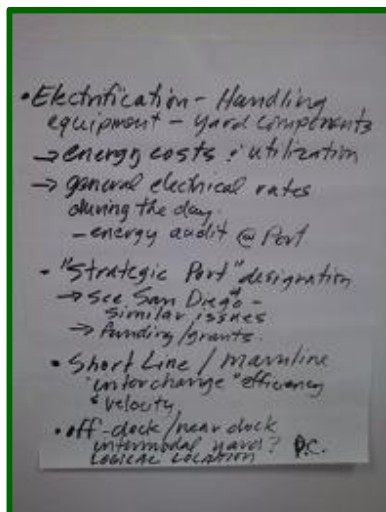 • Electrification - Handling
equipment - yard components
→ energy costs & utilization
→ general electrical rates
during the day.
- energy audit @ Port
• "Strategic Port" designation
→ See San Diego -
similar issues
→ Funding/grants.
• Short Line / mainline
"interchange" efficiency
& velocity
• off-dock / near dock
intermodal yard? P.C.
LOGICAL LOCATION